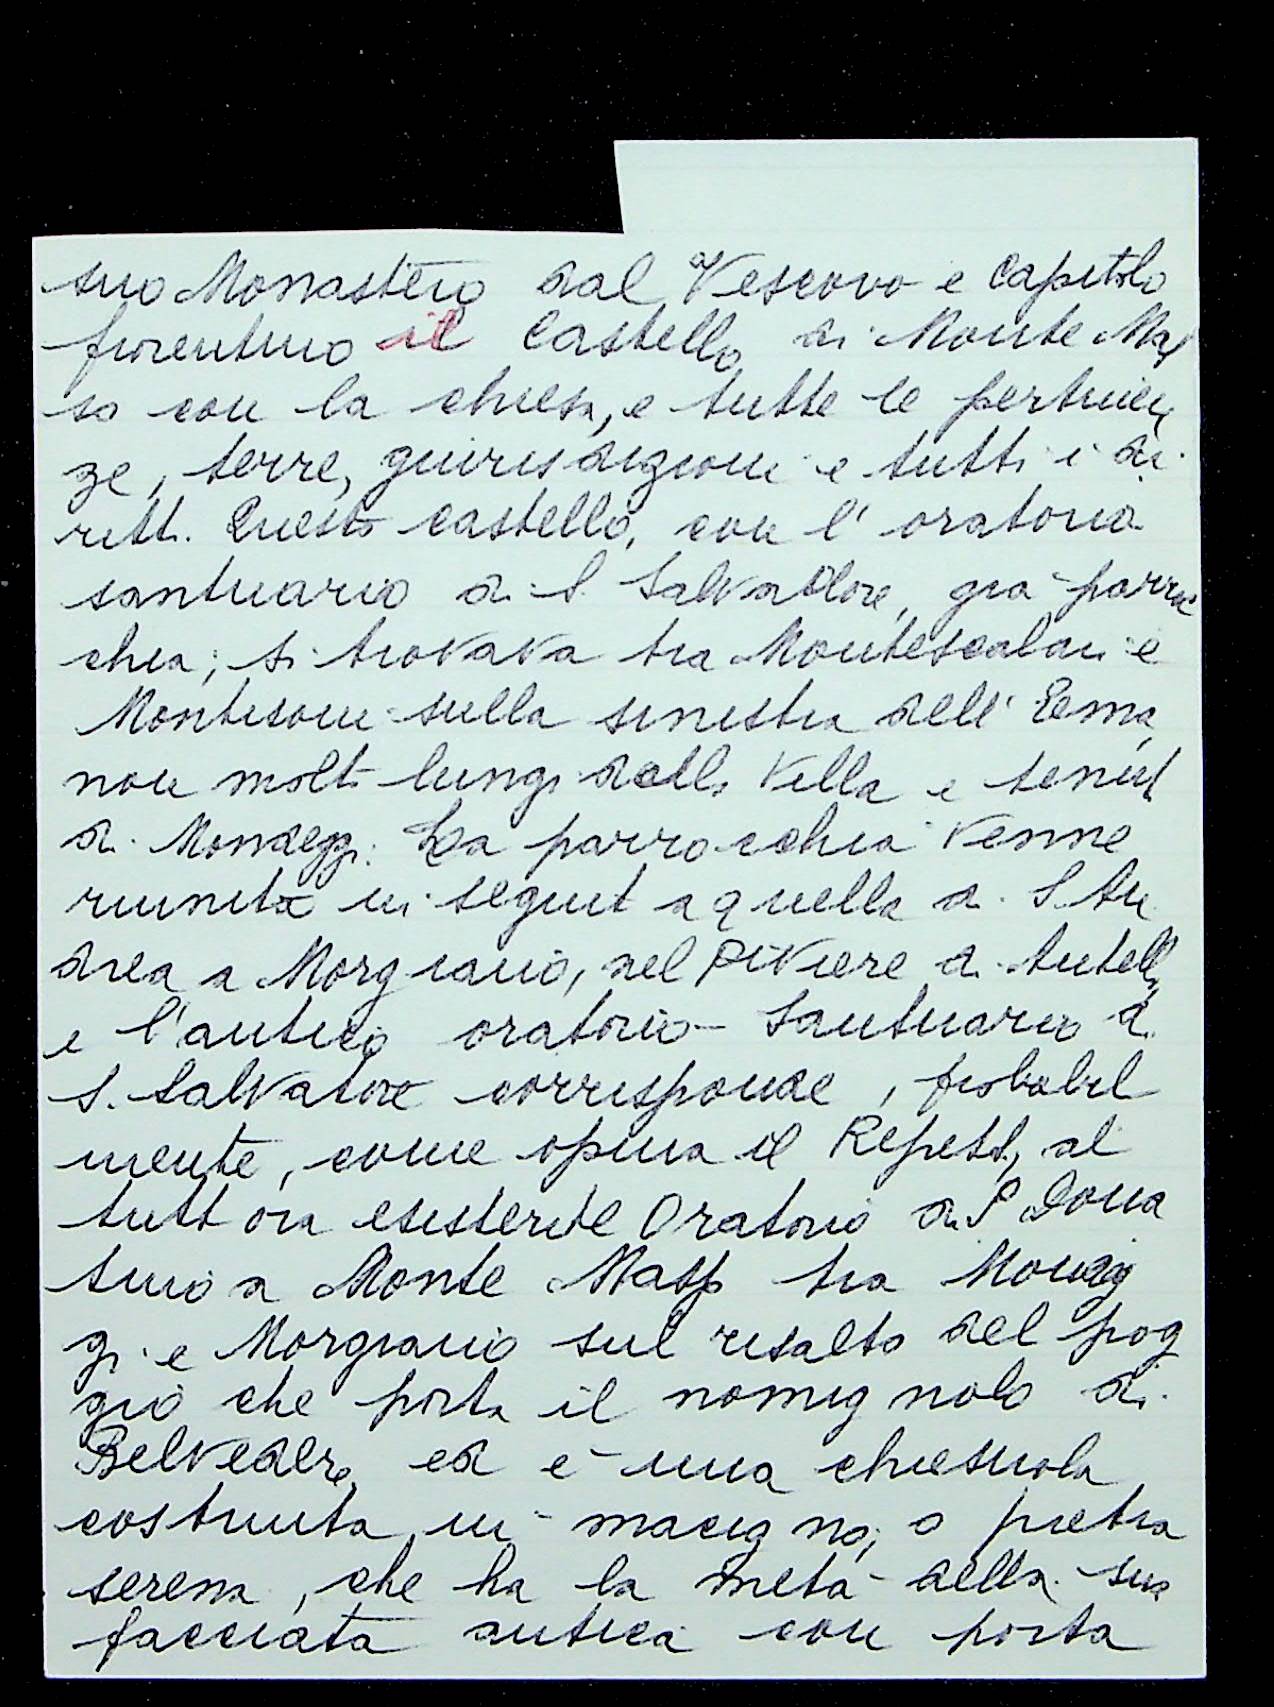 suo Monastero dal Vescovo e Capitolo
fiorentino il Castello di Monte Mas
so con la chiesa, e tutte le pertinen
ze, terre, giurisdizioni e tutti i di
ritti. Questo castello, con l'oratorio
santuario di S. Salvatore, già parroc
chia; si trovava tra Montescalari e
Montisoni sulla sinistra dell'Ema,
non molto lungi dalla Villa e tenuta
di Mondeggi. La parrocchia venne
riunita in seguito a quella di S. An
drea a Morgiano, nel piviere di Antella,
e l'antico oratorio - Santuario di
S. Salvatore corrisponde, probabil
mente, come opina il Repetti, al
tutt'ora esistente Oratorio di S. Dona
tino a Monte Masso tra Mondeg
gi e Morgiano sul risalto del pog
gio che porta il nomignolo di
Belvedere, ed è una chiesuola
costruita in macigno, o pietra
serena, che ha la metà della sua
facciata antica con porta